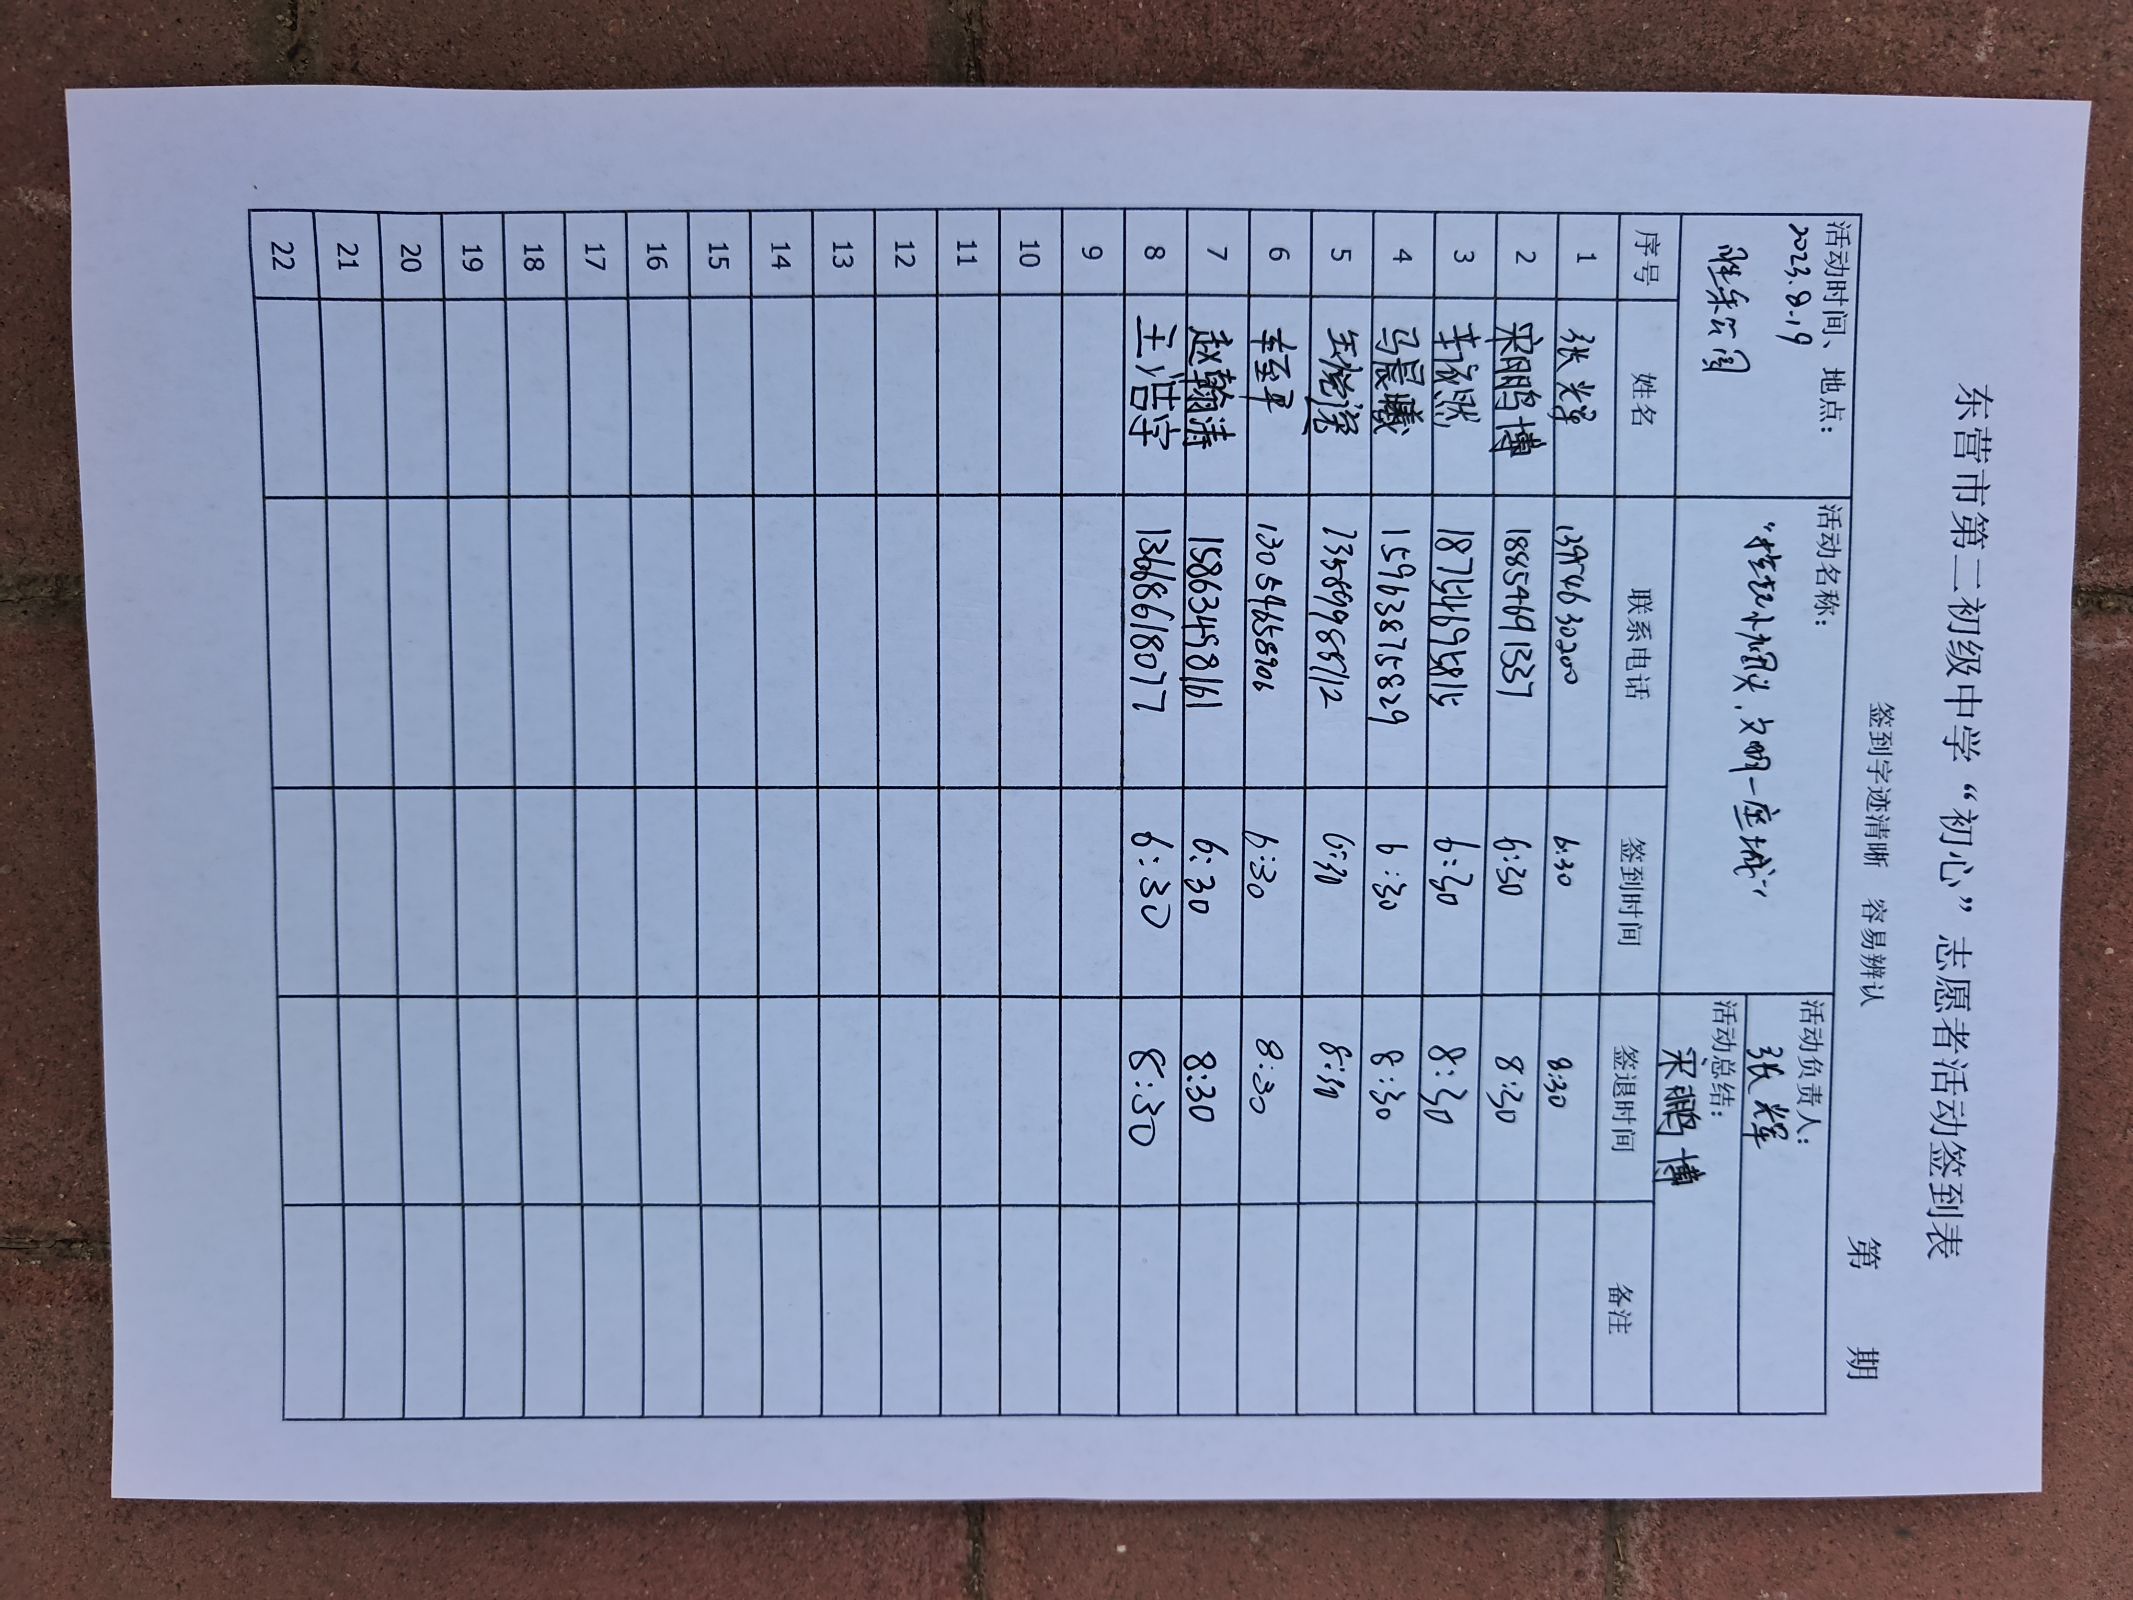 东营市第二初级中学“初心”志愿者活动签到表
签到字迹清晰 容易辨认 第 期
活动时间、地点： 活动名称： 活动负责人：
2023.8.19 张光辉
胜东公园 “捡起小烟头，文明一座城” 活动总结：
宋鹏博
序号 姓名 联系电话 签到时间 签退时间 备注
1 张光军 13954630200 6:30 8:30
2 宋鹏博 18854691337 6:30 8:30
3 18754695815 6:30 8:30
4 马晨曦 15963875829 6:30 8:30
5 6:30 8:30
6 13054658906 6:30 8:30
7 赵翰涛 15863458161 6:30 8:30
8 王浩宇 13668618077 6:30 8:30
9
10
11
12
13
14
15
16
17
18
19
20
21
22